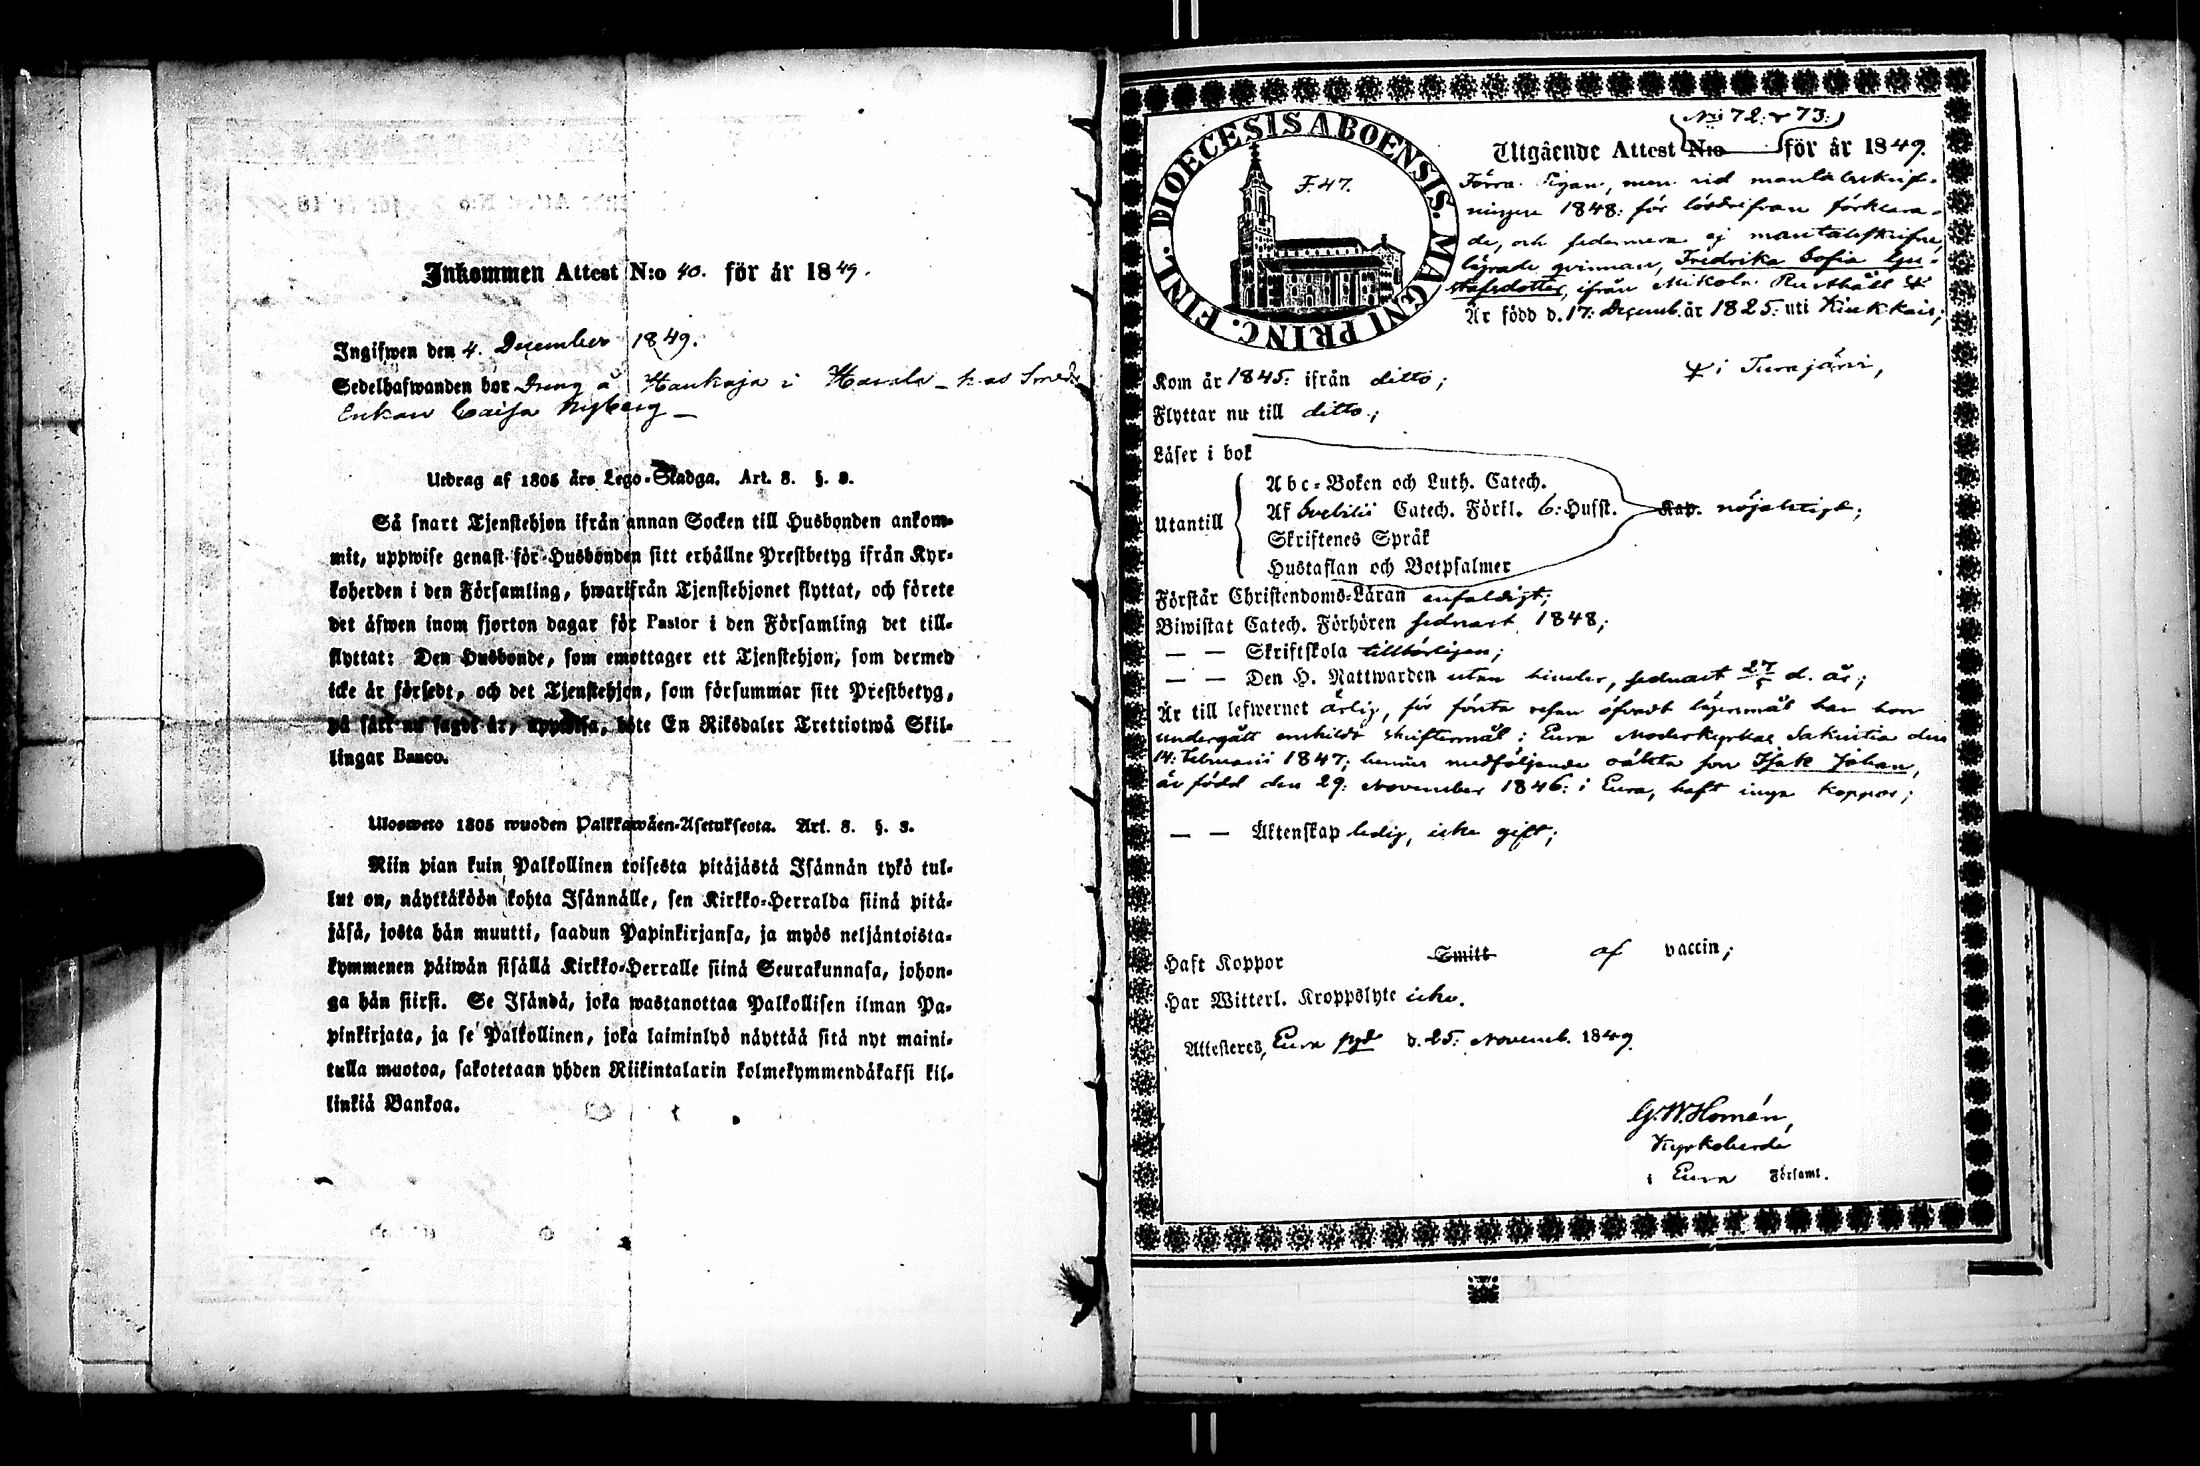 Inkommen Attest N:o 40. för år 1849.
Ingifwen den 4. December 1849.
Sedelhafwanden bor Dreng å Haukaja i Harola – hos Smeds
Enkan Caisa Nyberg –
Utdrag af 1805 års Lego-Stadga. Art. 3. §. 3.
Så snart Tjenstehjon ifrån annan Socken till Husbonden ankom-
mit, uppwise genast för Husbonden sitt erhållne Prestbetyg ifrån Kyr-
koherden i den Församling, hwarifrån Tjenstehjonet flyttat, och förete
det äfwen inom fjorton dagar för Pastor i den Församling det till-
flyttat: Den Husbonde, som emottager ett Tjenstehjon, som dermed
icke är försedt, och det Tjenstehjon, som försummar sitt Prestbetyg,
på sätt nu sagdt är, uppwisa, böte En Riksdaler Trettiotwå Skil-
lingar Banco.
Ulosweto 1805 wuoden Palkkawäen-Asetuksesta. Art. 3. §. 3.
Niin pian kuin Palkollinen toisesta pitäjästä Isännän tykö tul-
lut on, näyttäköön kohta Isännälle, sen Kirkko-Herralda siinä pitä-
jäsä, josta hän muutti, saadun Papinkirjansa, ja myös neljäntoista-
kymmenen päiwän sisällä Kirkko-Herralle siinä Seurakunnasa, johon-
ga hän siirsi. Se Isändä, joka wastanottaa Palkollisen ilman Pa-
pinkirjata, ja se Palkollinen, joka laiminlyö näyttää sitä nyt maini-
tulla muotoa, sakotetaan yhden Riikintalarin kolmekymmendäkaksi kil-
linkiä Bankoa.
DIOECESIS ABOENSIS. MAGNI PRINC. FINL.
F. 47.
N:ris 72: & 73:
Utgående Attest N:o för år 1849.
Förra Pigan, men vid mantalsskrif-
ningen 1848: för lösdrifvan förklara-
de, och sedermera ej mantalsskrifne,
lägrade qvinnan, Fredrika Sofia Gu-
stafsdotter, ifrån Mikola Rusthåll
Är född d. 17: Decemb. år 1825: uti Kiukkais;
i Turajärvi,
Kom år 1845: ifrån ditto;
Flyttar nu till ditto;
Läser i bok
Utantill
Abc-Boken och Luth. Catech.
Af Svebilii Catech. Förkl. 6: Hufst. Kap. nöjaktigt;
Skriftenes Språk
Hustaflan och Botpsalmer
Förstår Christendoms-Läran enfaldigt;
Biwistat Catech. Förhören sednast 1848;
— — Skriftskola tillbörligen;
— — Den H. Nattwarden utan hinder, sednast 27/5 d. år;
Är till lefwernet ärlig, för första resan öfvadt lägersmål har hon
undergått enskildt skriftermål i Eura Moderkyrkas Sakristia den
14: Februarii 1847; hennes medföljande oäkta son Isak Johan,
är född den 29: November 1846: i Eura, haft inga koppor;
— — Äktenskap ledig, icke gift;
Haft Koppor Smitt af vaccin;
Har Witterl. Kroppslyte icke.
Attesteres, Eura pgd d. 25: Novemb. 1849.
G. W. Homén,
Kyrkoherde
i Eura Församl.